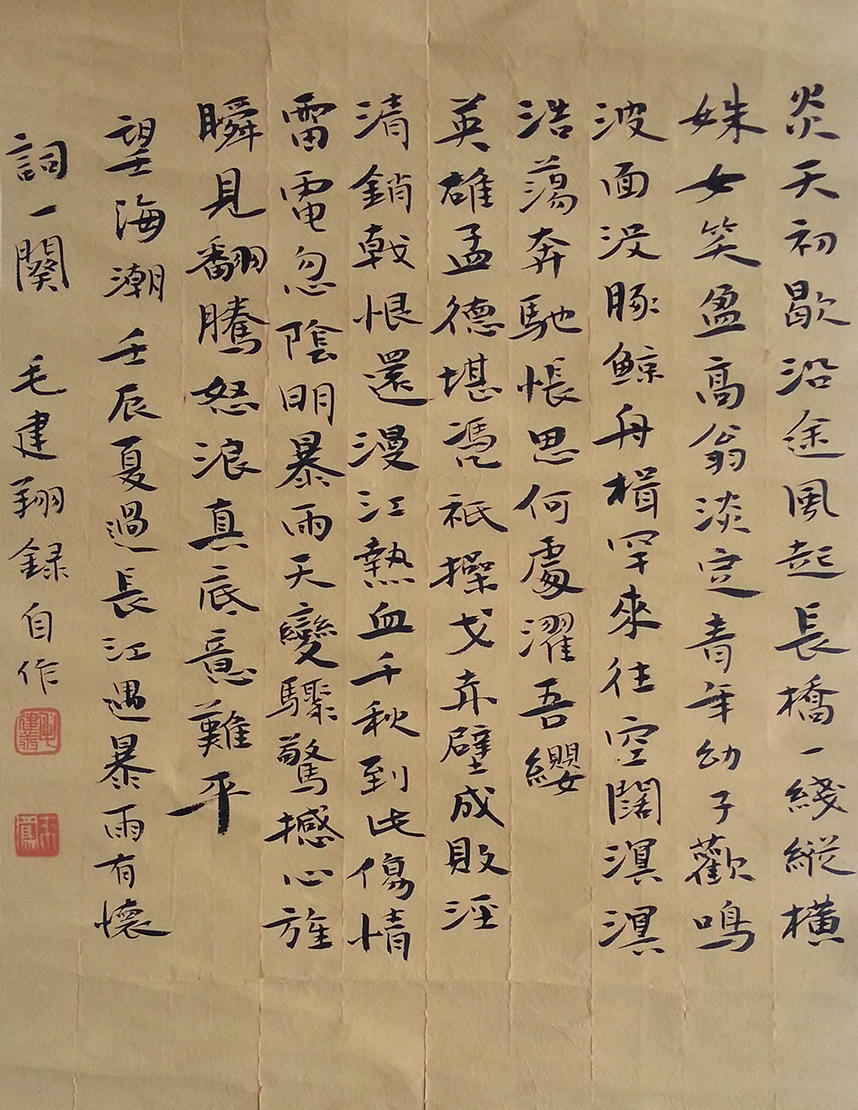 炎天初歇沿途風起長橋一綫縱橫
姝女笑盈高翁淡定青年幼子歡鳴
波面没豚鯨舟楫罕來往空闊溟溟
浩蕩奔馳悵思何處濯吾纓
英雄孟德堪憑祇操戈赤壁成敗涇
清銷戟恨還漫江熱血千秋到此傷情
雷電忽陰明暴雨天變驟驚撼心旌
瞬見翻騰怒浪真底意難平
望海潮壬辰夏過長江遇暴雨有懷
詞一闋 毛建翔録自作